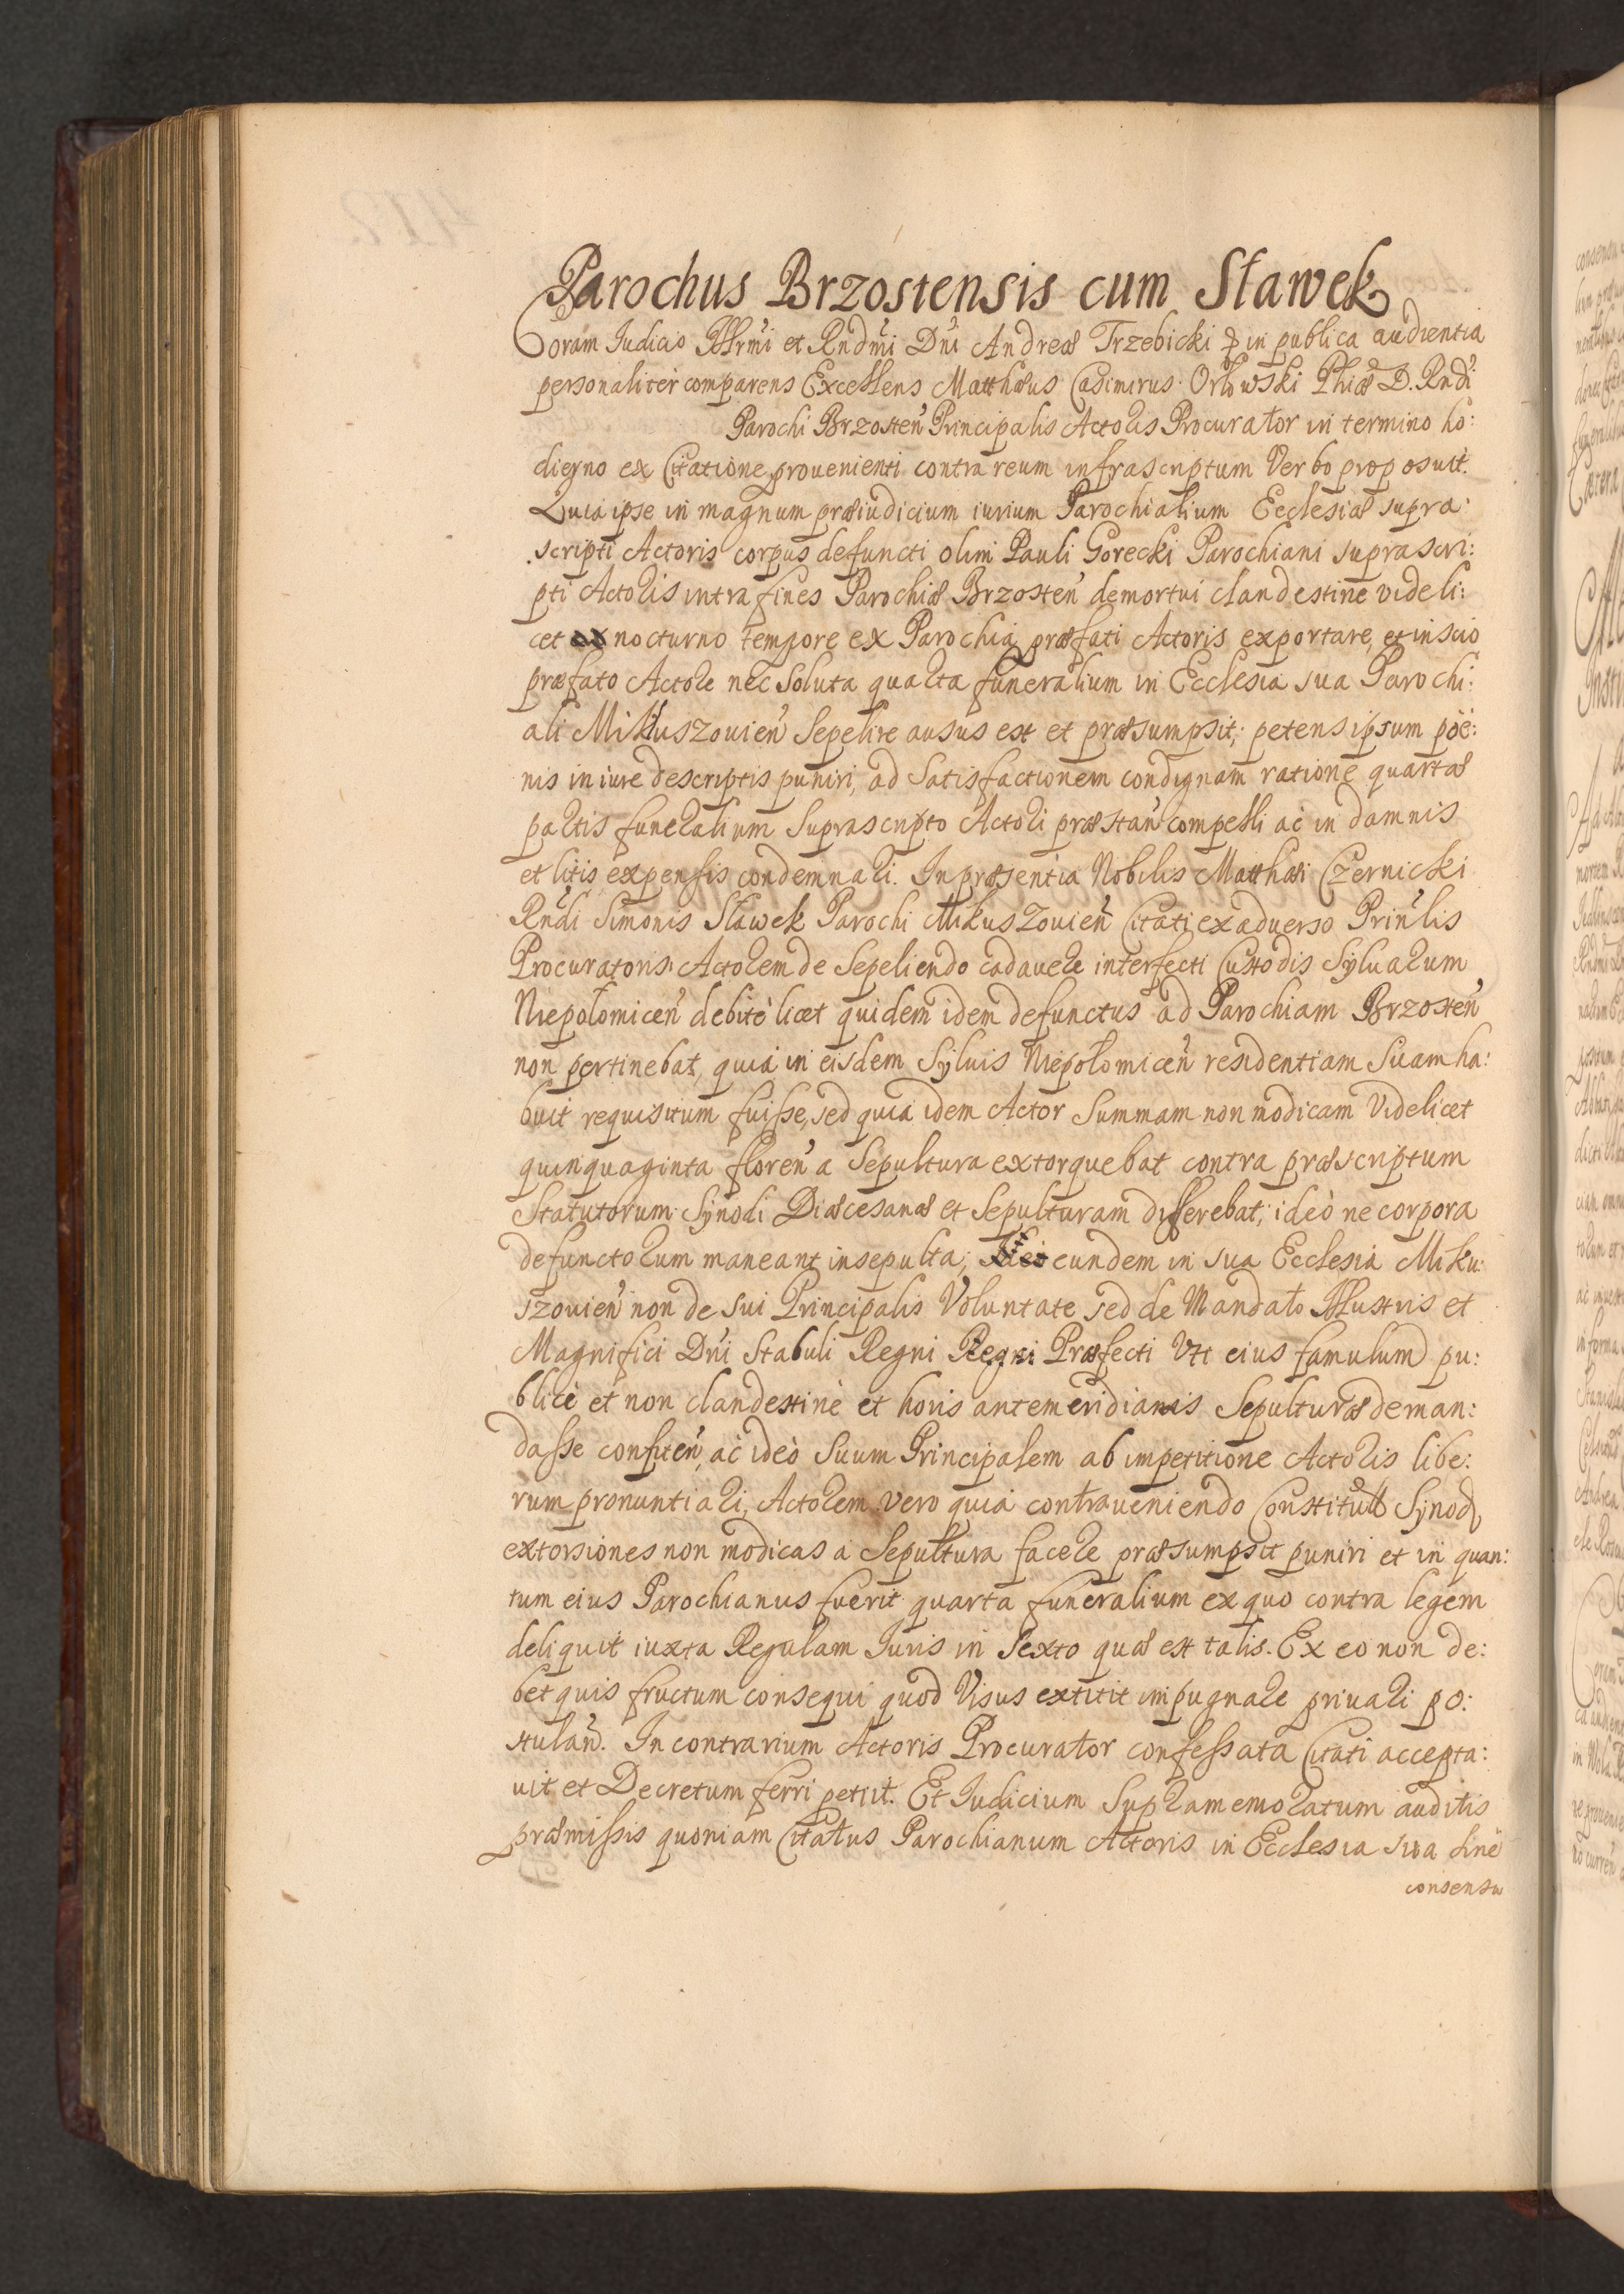 Parochus Brzostensis cum Sławek
Coram Iudicio Illrmi et Rndmi Dni Andreæ Trzebicki in publica audientia
personaliter comparens Excellens Matthæus Casimirus Orłowski Phiæ D. Rndi
Parochi Brzosten Principalis Actoris Procurator in termino ho:
dierno ex Citatione prouenienti contra reum infrascriptum Verbo proposuit.
Quia ipse in magnum præiudicium iurium Parochialium Ecclesiæ supra:
scripti Actoris corpus defuncti olim Pauli Gorecki Parochiani suprascri:
pti Actoris intra fines Parochiæ Brzosten demortui clandestine videli:
cet nocturno tempore ex Parochia præfati Actoris exportare, et inscio
præfato Actore nec soluta quarta funeralium in Ecclesia sua Parochi:
ali Mikluszouien Sepelire ausus est et præsumpsit; petens ipsum poë:
nis in iure descriptis puniri, ad Satisfactionem condignam ratione quartæ
partis funeralium Suprascripto Actori præstan compelli ac in damnis
et litis expensis condemnari. In præsentia Nobilis Matthæi Czernicki
Rndi Simonis Sławek Parochi Mikuszouien Citati ex aduerso Prinlis
Procuratoris Actorem de Sepeliendo cadauere interfecti Custodis Syluarum
Niepołomicen debitè licet quidem idem defunctus ad Parochiam Brzosten
non pertinebat, quia in eisdem Syluis Niepołomicen residentiam Suam ha:
buit requisitum fuisse, sed quia idem Actor Summam non modicam Videlicet
quinquaginta floren a Sepultura extorquebat contra præscriptum
Statutorum Synodi Diæcesanæ et Sepulturam differebat; ideò ne corpora
defunctorum maneant insepulta; eundem in sua Ecclesia Miku:
szouien non de sui Principalis Voluntate sed de Mandato Illustris et
Magnifici Dni Stabuli Regni Regni Præfecti Vti eius famulum pu:
blicè et non clandestinè et horis antemeridianis Sepulturæ deman:
dasse confiten, ac ideò Suum Principalem ab impetitione Actoris libe:
rum pronuntiari, Actorem vero quia contraueniendo Constitutt Synod
extorsiones non modicas a Sepultura facere præsumpsit puniri et in quan:
tum eius Parochianus fuerit quarta funeralium ex quo contra legem
deliquit iuxta Regulam Iuris in Sexto quæ est talis. Ex eo non de:
bet quis fructum consequi quod Visus extitit impugnare priuari po:
stulan. In contrarium Actoris Procurator confessata Citati accepta:
uit et Decretum ferri petiit. Et Iudicium Supramemoratum auditis
præmissis quoniam Citatus Parochianum Actoris in Ecclesia sua sine
consensu